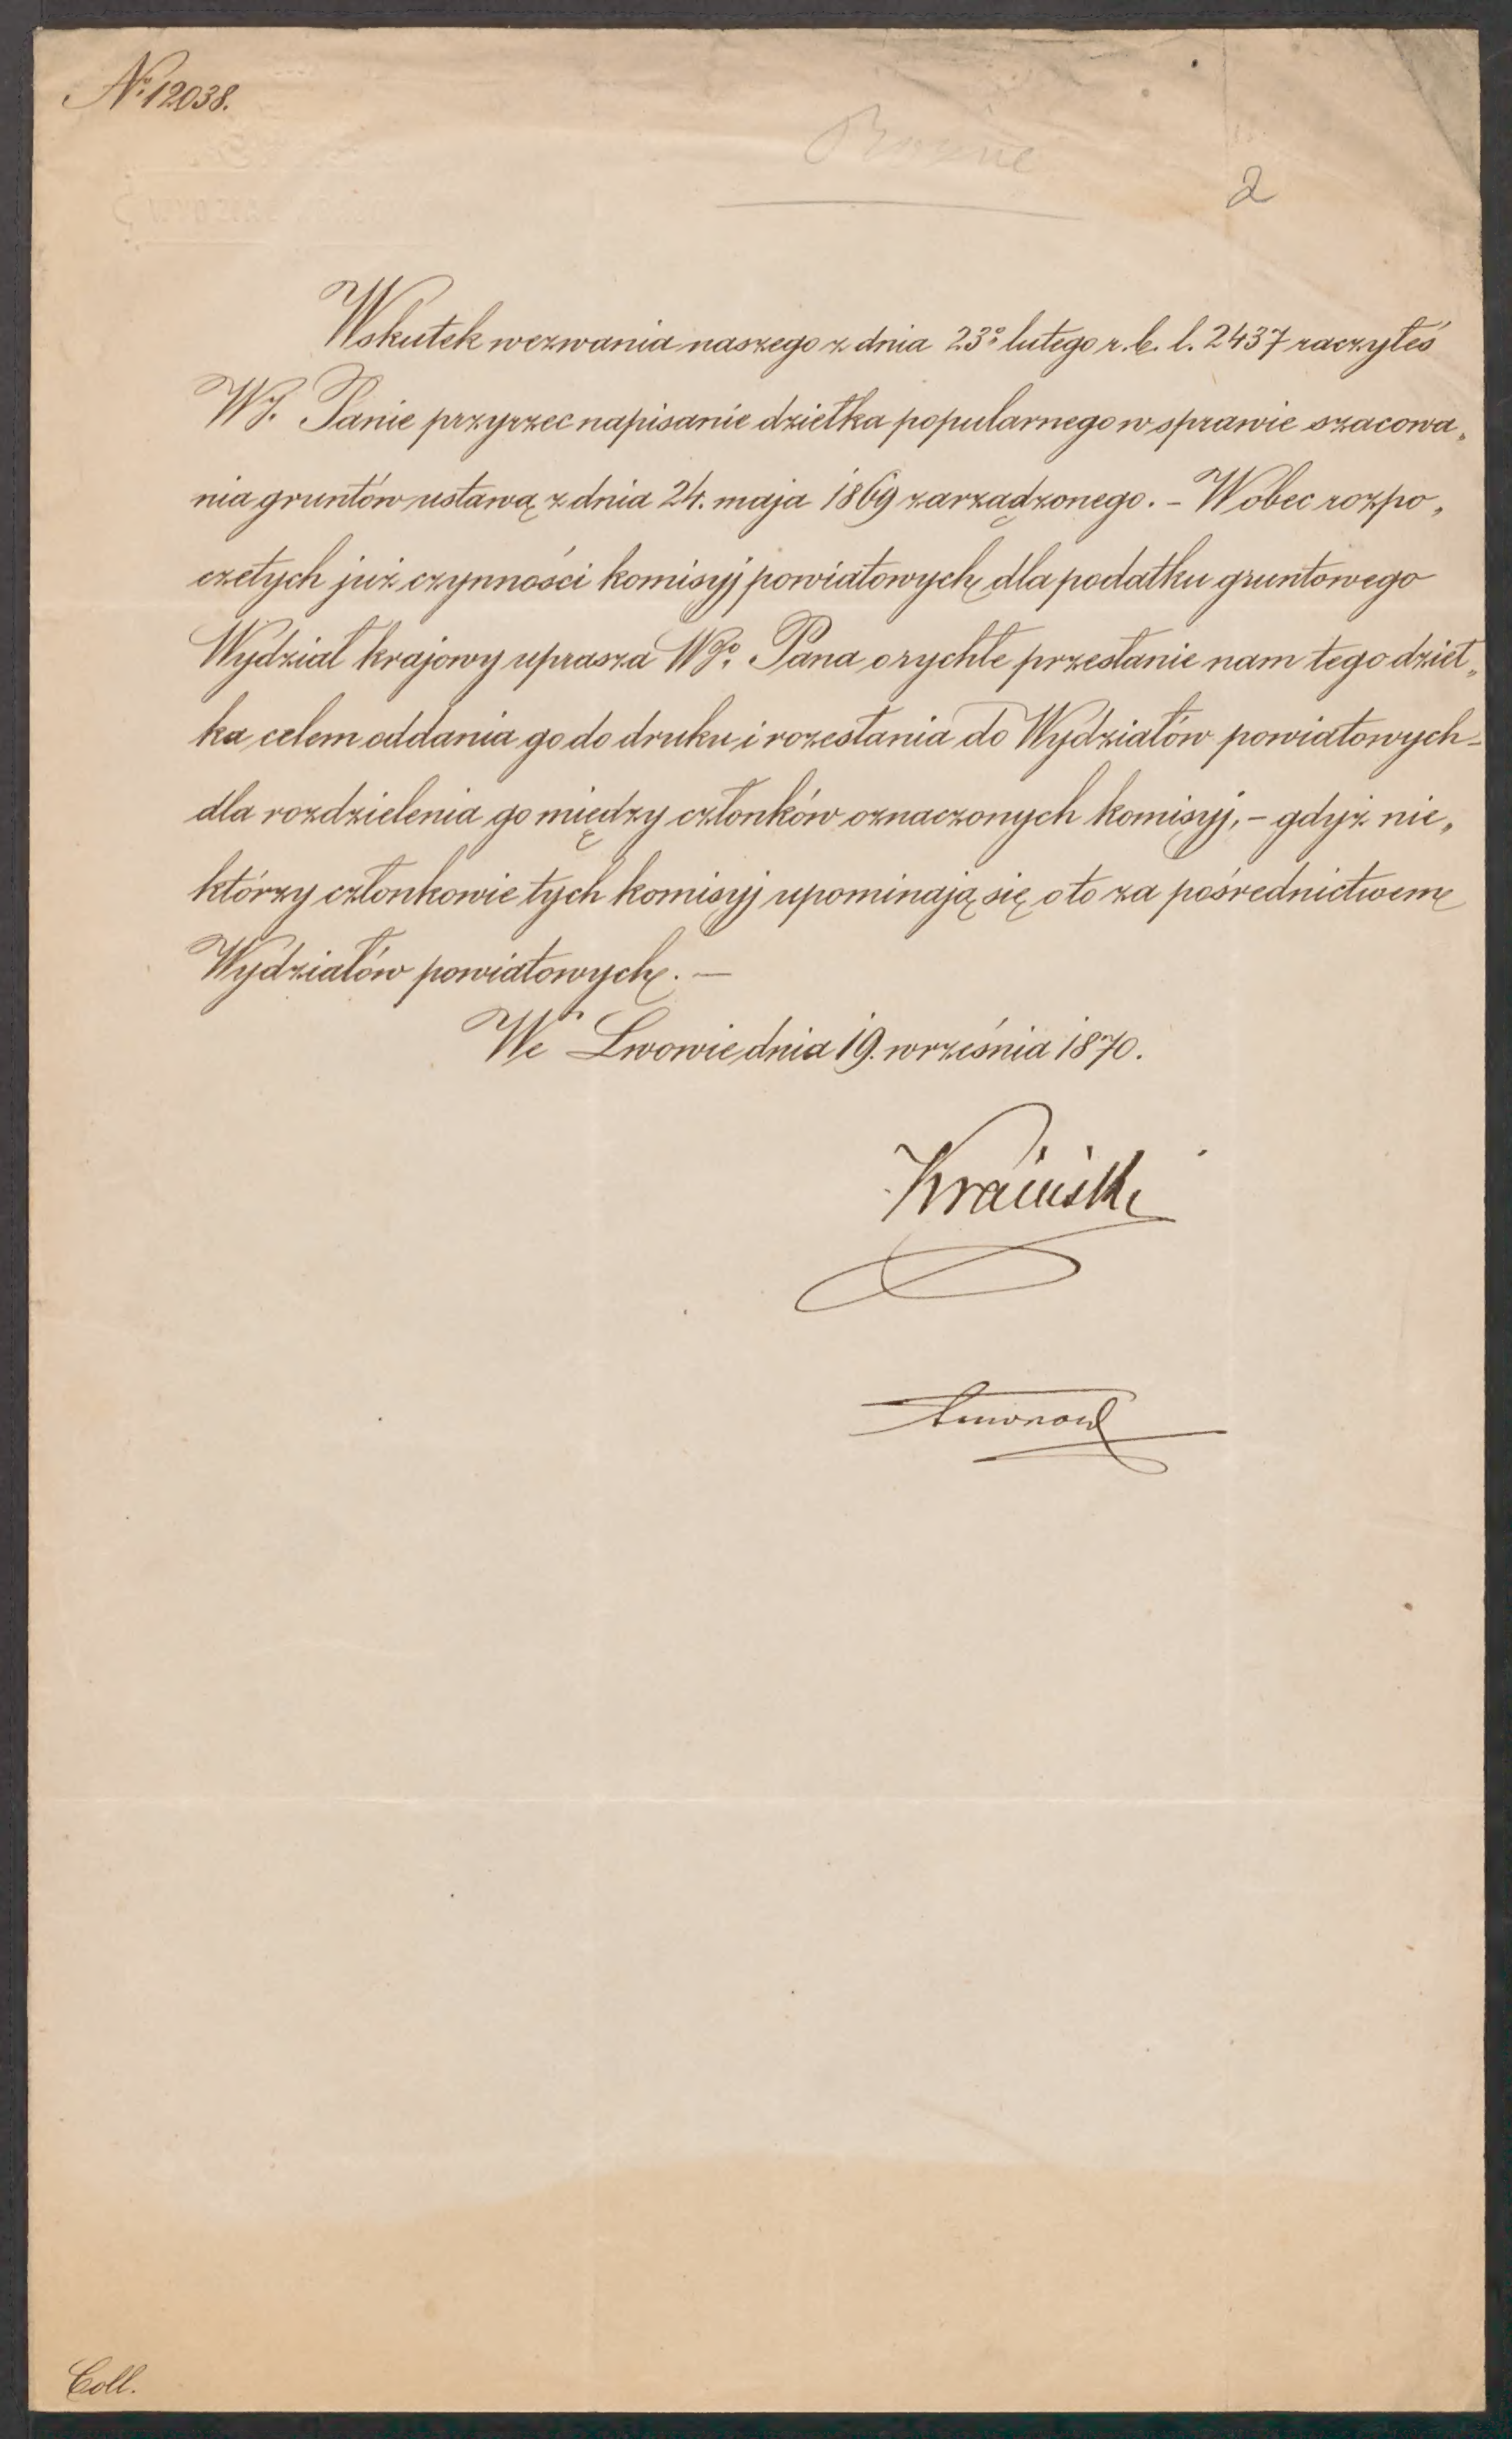 No. 12038.
Różne
2
Wskutek wezwania naszego z dnia 23o lutego r. b. l. 2437 raczyłeś
WJ. Panie przyrzec napisanie dziełka popularnego w sprawie szacowa„
nia gruntów ustawą z dnia 24. maja 1869 zarządzonego. – Wobec rozpo„
czętych już czynności komisyj powiatowych dla podatku gruntowego
Wydział krajowy uprasza WJo. Pana o rychłe przesłanie nam tego dzieł„
ka celem oddania go do druku i rozesłania do Wydziałów powiatowych –
dla rozdzielenia go między członków oznaczonych komisyj, – gdyż nie„
którzy członkowie tych komisyj upominają się o to za pośrednictwem
Wydziałów powiatowych. —
We Lwowie dnia 19. września 1870.
Kraiński
Coll.